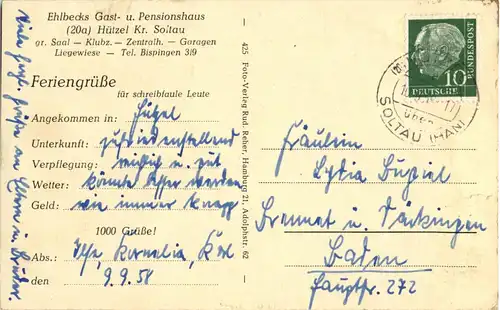 Ehlbecks Gast- u. Pensionshaus
(20a) Hützel Kr. Soltau
gr. Saal — Klubz. — Zentralh. — Garagen
Liegewiese — Tel. Bispingen 3/9
Feriengrüße
für schreibfaule Leute
Angekommen in: Hützel
Unterkunft: zufriedenstellend
Verpflegung: reichlich u. gut
Wetter: könnte besser werden
Geld: wie immer knapp
1000 Grüße!
Abs.: Ilse, Kornelia, Karl
den 9.9.58
Viele herzl. Grüße an Eltern u. Brüder.
425 Foto-Verlag Rud. Reher, Hamburg 21, Adolphstr. 62
10
DEUTSCHE
BUNDESPOST
über
SOLTAU (HAN)
Fräulein
Lydia
Brennet u. Säckingen
Baden
Hauptstr. 272